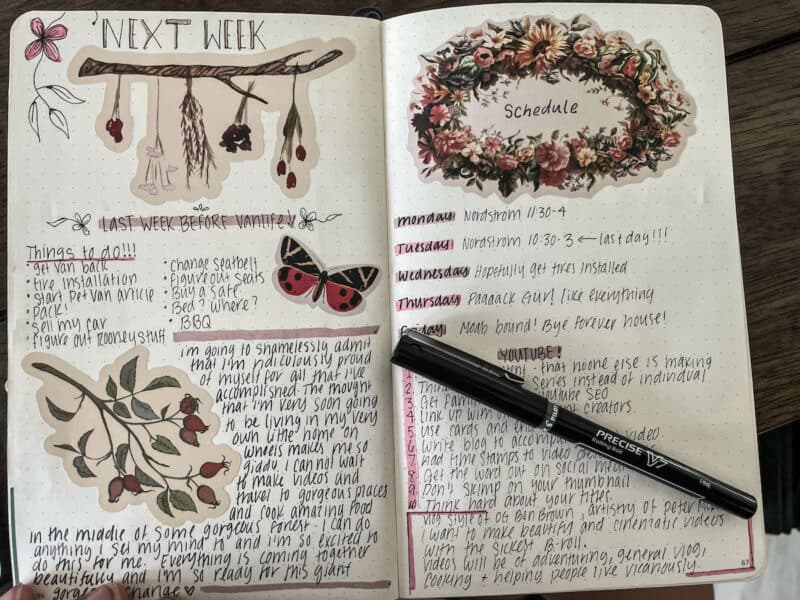 NEXT WEEK
LAST WEEK BEFORE VANLIFE
Things to do!!!
• get van back
• tire installation
• start Pet van article
• pack!
• sell my car
• figure out Rooney stuff
• change seatbelt
• figure out seats
• Buy a safe
• Bed? Where?
• BBQ
i'm going to shamelessly admit
that i'm ridiculously proud
of myself for all that i've
accomplished. The thought
that i'm very soon going
to be living in my very
own little home on
wheels makes me so
giddy. I can not wait
to make videos and
travel to gorgeous places
and cook amazing food
in the middle of some gorgeous forest. I can do
anything I set my mind to and i'm so excited to
do this for me. Everything is coming together
beautifully and i'm so ready for this giant
gorgeous change
Schedule
monday Nordstrom 11:30-4
Tuesday Nordstrom 10:30-3 ← last day!!!
Wednesday Hopefully get tires installed
Thursday Paaaack Gurl like everything
Friday Moab bound! Bye forever house!
YOUTUBE!
- that noone else is making
2. Think series instead of individual
3. Get Fam YouTube SEO
4. Link up with creators.
5. use cards and en video
6. Write blog to accomp
7. Add time stamps to video
8. Get the word out on social media
9. Don't skimp on your thumbnail
10. Think about your titles.
Vlog style of OG Ben Brown, artistry of Peter
I want to make beautiful and cinematic videos
with the sickest B-roll.
videos will be of adventuring, general vlog,
cooking + helping people live vicariously.
67
PRECISE V7
Rolling Ball
FINE